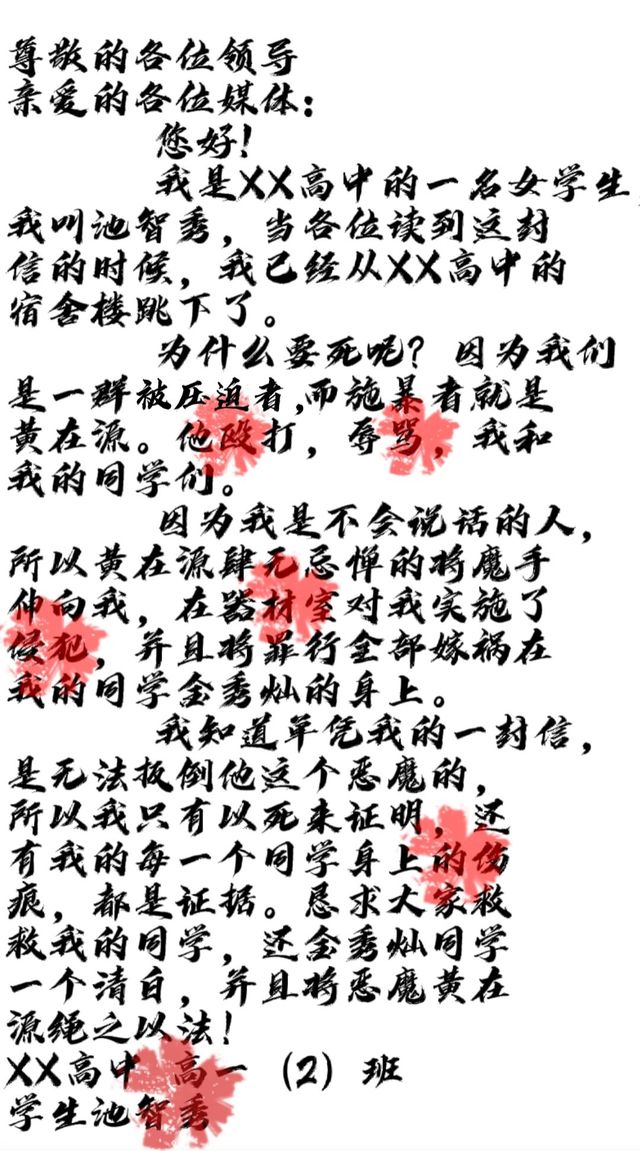 尊敬的各位领导
亲爱的各位媒体：
您好！
我是XX高中的一名女学生，
我叫池智秀，当各位读到这封
信的时候，我已经从XX高中的
宿舍楼跳下了。
为什么要死呢？因为我们
是一群被压迫者，而施暴者就是
黄在源。他殴打，辱骂，我和
我的同学们。
因为我是不会说话的人，
所以黄在源肆无忌惮的将魔手
伸向我，在器材室对我实施了
侵犯，并且将罪行全部嫁祸在
我的同学金秀灿的身上。
我知道单凭我的一封信，
是无法扳倒他这个恶魔的，
所以我只有以死来证明，还
有我的每一个同学身上的伤
痕，都是证据。恳求大家救
救我的同学，还金秀灿同学
一个清白，并且将恶魔黄在
源绳之以法！
XX高中 高一 （2）班
学生池智秀